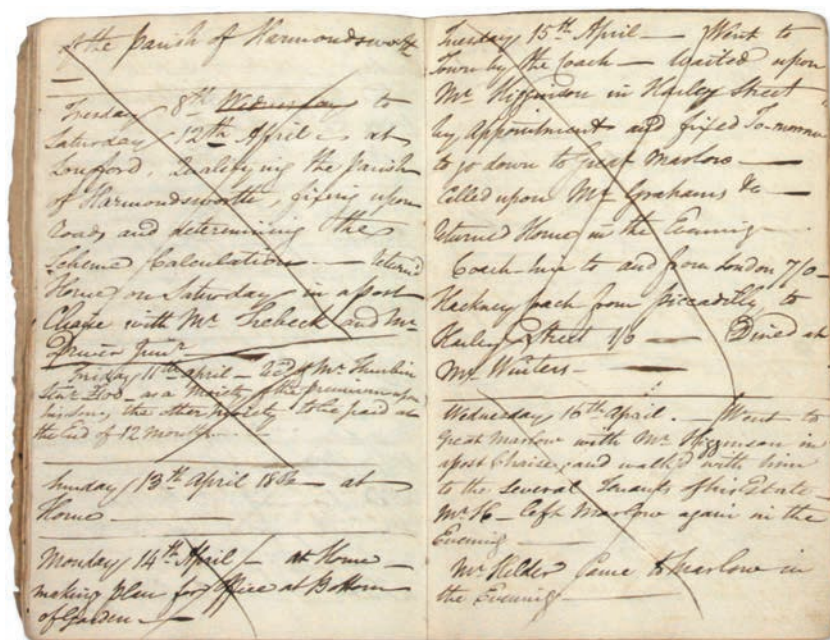 of the parish of Harmondsworth
—
Tuesday 8th Wednesday to
Saturday 12th April - at
Longford, Qualifying the Parish
of Harmondsworth, fixing upon
Roads and determining the
Scheme Calculation — Return'd
Home on Saturday in a post
Chaise with Mr Trebeck and Mr
Driver Junr —
Friday 11th April - Mr Thurbin
as a Moiety of the premium upon
his Son, the other moiety to be paid at
the End of 12 Months —
Sunday 13th April 1806 — at
Home —
Monday 14th April — at Home —
making plan for Office at Bottom
of Garden —
Tuesday 15th April — Went to
Town by the Coach — waited upon
Mr Higginson in Harley Street
by Appointment and fixed To-morrow
to go down to Great Marlow —
Called upon Mr Grahams &c —
Returned Home in the Evening
Coach hire to and from London 7/0 —
Hackney Coach from Piccadilly to
Harley Street 1/6 — Dined at
Mr Winters —
Wednesday 16th April. — Went to
Great Marlow with Mr Higginson in
a post Chaise, and walk'd with him
to the Several Tenants of his Estate —
Mr H — left Marlow again in the
Evening —
Mr Helder Came to Marlow in
the Evening —